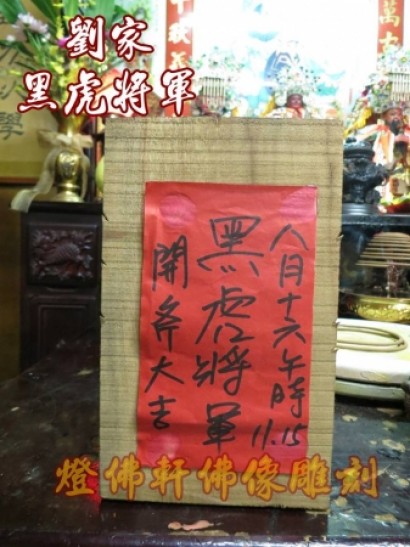 劉家
黑虎將軍
八月十六午時
11.15
黑虎將軍
開斧大吉
燈佛軒佛像雕刻